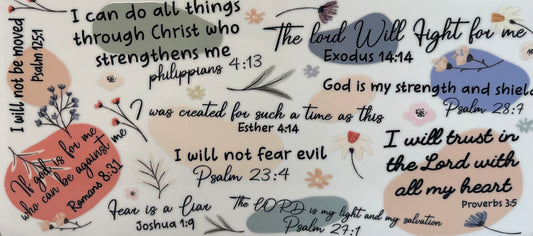 I will not be moved
Psalm 125:1
I can do all things
through Christ who
strengthens me
philippians 4:13
The lord Will Fight for me
Exodus 14:14
God is my strength and shield
Psalm 28:7
I was created for such a time as this
Esther 4:14
If god is for me
who can be against me
Romans 8:31
I will not fear evil
Psalm 23:4
I will trust in
the Lord with
all my heart
Proverbs 3:5
Fear is a Liar
Joshua 1:9
The LORD is my light and my salvation
Psalm 27:1